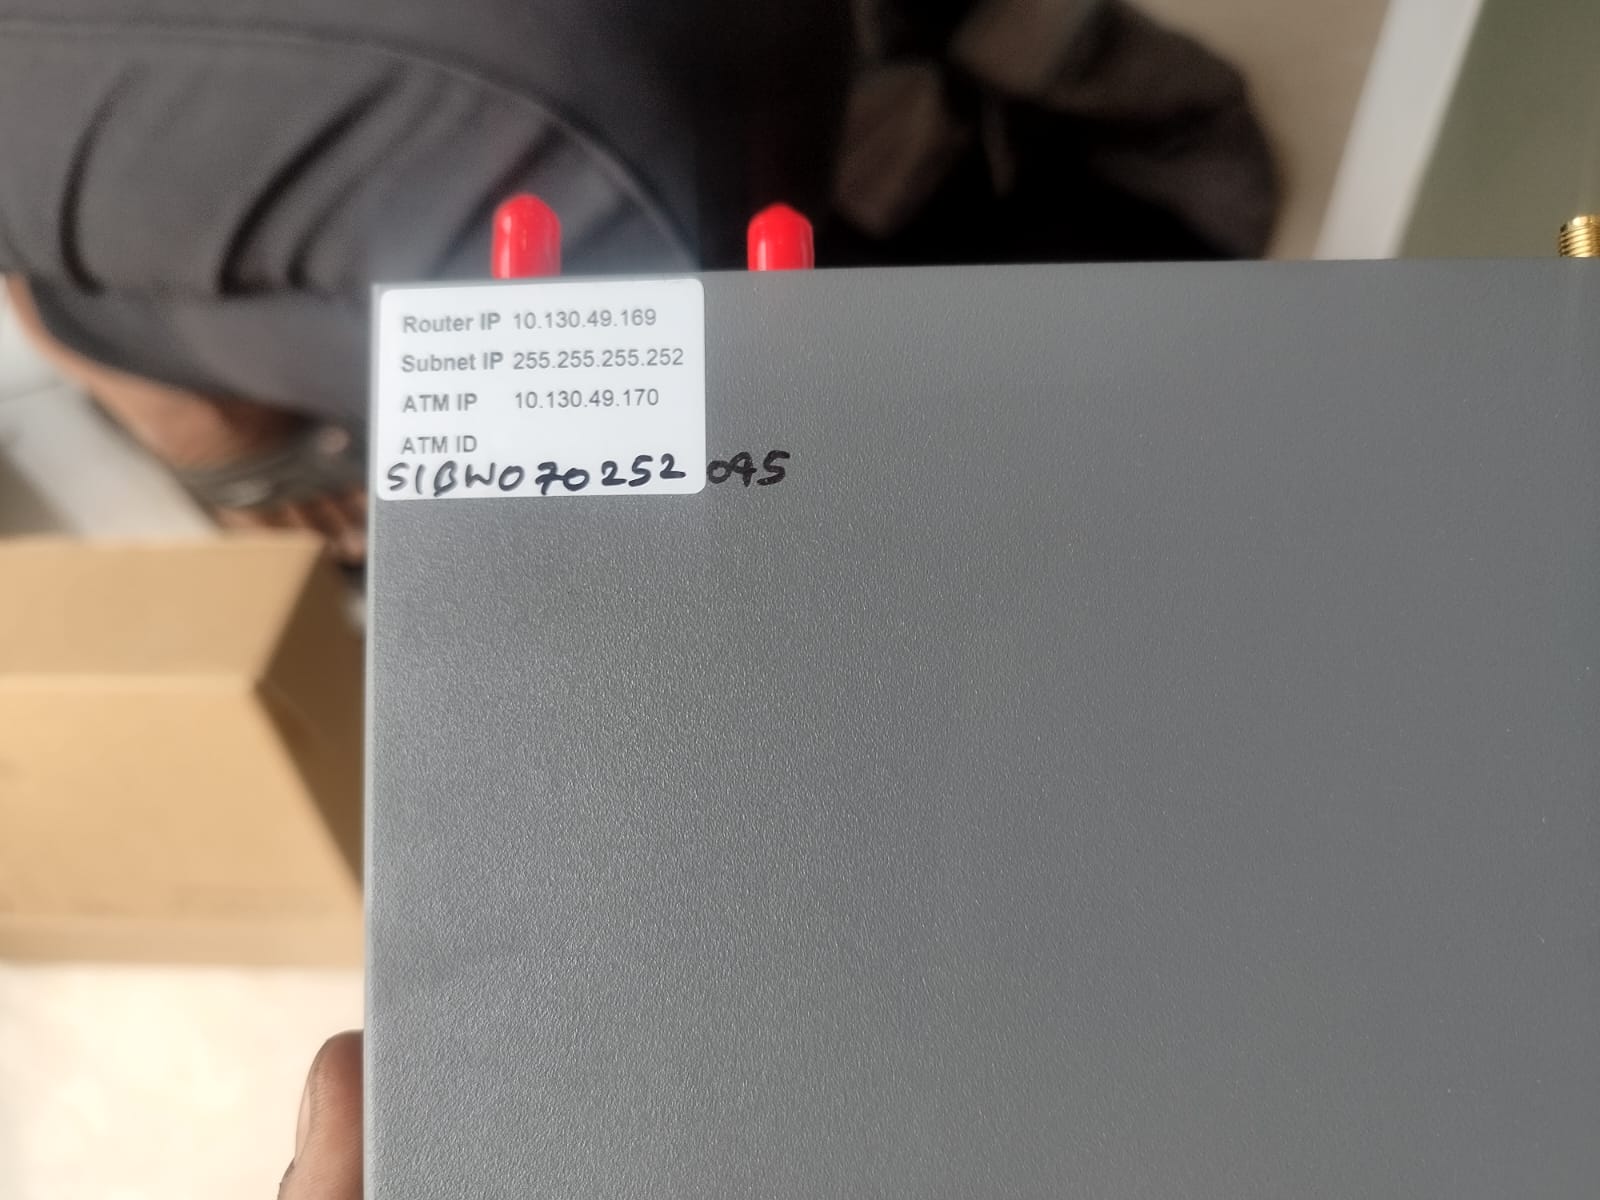 Router IP 10.130.49.169
Subnet IP 255.255.255.252
ATM IP 10.130.49.170
ATM ID
SIBW070252095